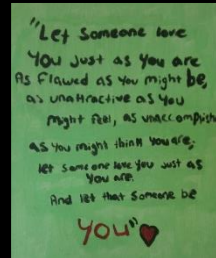 "Let someone love
you just as you are
As Flawed as you might be,
as unattractive as you
might feel, as unaccomplish
as you might think you are;
let someone love you just as
you are.
And let that someone be
you"